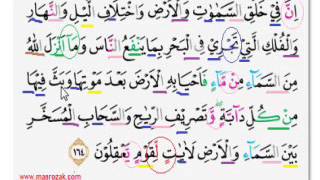 إِنَّ فِي خَلْقِ السَّمَٰوَٰتِ وَالْأَرْضِ وَاخْتِلَافِ الَّيْلِ وَالنَّهَارِ
وَالْفُلْكِ الَّتِي تَجْرِي فِي الْبَحْرِ بِمَا يَنفَعُ النَّاسَ وَمَا أَنزَلَ اللَّهُ
مِنَ السَّمَاءِ مِن مَّاءٍ فَأَحْيَا بِهِ الْأَرْضَ بَعْدَ مَوْتِهَا وَبَثَّ فِيهَا
مِن كُلِّ دَابَّةٍ وَتَصْرِيفِ الرِّيَٰحِ وَالسَّحَابِ الْمُسَخَّرِ
بَيْنَ السَّمَاءِ وَالْأَرْضِ لَآيَٰتٍ لِّقَوْمٍ يَعْقِلُونَ ١٦٤
www.masrozak.com